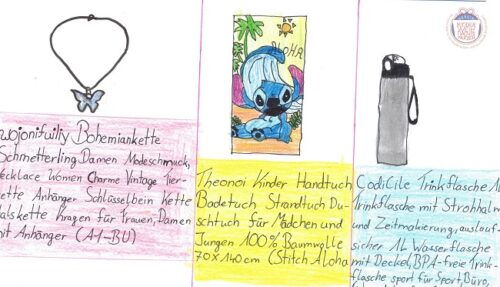 ALOHA
wojonifuiliy Bohemiankette
Schmetterling Damen Modeschmuck,
Necklace Women Charme Vintage Tier-
kette Anhänger Schlüsselbein Kette
Halskette Kragen für Frauen, Damen
mit Anhänger (A1-BU)
Theonoi Kinder Handtuch
Badetuch Strandtuch Du-
schtuch für Mädchen und
Jungen 100% Baumwolle
70x140cm (Stitch Aloha
CodiCile Trinkflasche 1L
Trinkflasche mit Strohhalm
und Zeitmarkierung, auslauf-
sicher 1L Wasserflasche
mit Deckel, BPA-freie Trink-
flasche sport für Sport, Büro,